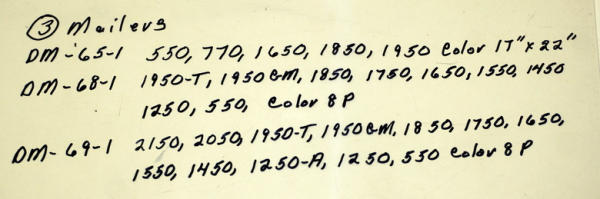 ③ Mailers
DM-65-1 550, 770, 1650, 1850, 1950 Color 17" x 22"
DM-68-1 1950-T, 1950 GM, 1850, 1750, 1650, 1550, 1450
1250, 550, Color 8 P
DM-69-1 2150, 2050, 1950-T, 1950 GM, 1850, 1750, 1650,
1550, 1450, 1250-A, 1250, 550 Color 8 P